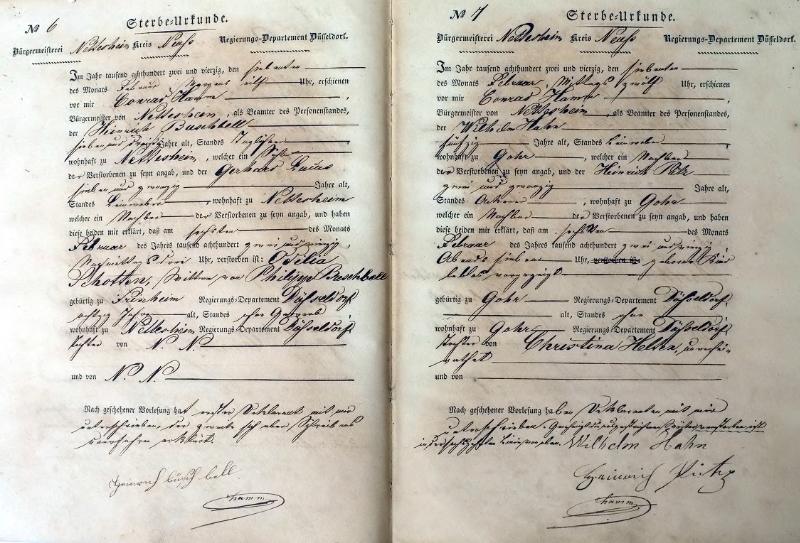 № 6
Sterbe-Urkunde.
Bürgermeisterei Nettesheim Kreis Neuß Regierungs-Departement Düsseldorf.
Im Jahr tausend achthundert zwei und vierzig, den siebenten
des Monats Februar Morgens Uhr, erschienen
vor mir Conrad Hamm
Bürgermeister von Nettesheim, als Beamter des Personenstandes,
der Heinrich Buschbell
sieben und Jahre alt, Standes Taglöhner
wohnhaft zu Nettesheim, welcher ein Sohn
der Verstorbenen zu seyn angab, und der Gerhard
sieben und zwanzig Jahre alt,
Standes wohnhaft zu Nettesheim
welcher ein Nachbar der Verstorbenen zu seyn angab, und haben
diese beiden mir erklärt, daß am sechsten des Monats
Februar des Jahres tausend achthundert zwei und vierzig
Nachmittags drei Uhr, verstorben ist: Odilia
Schotten, Wittwe von Philipp Buschbell
gebürtig zu Regierungs-Departement Düsseldorf
achtzig Jahre alt, Standes ohne Gewerb
wohnhaft zu Nettesheim Regierungs-Departement Düsseldorf
Tochter von N. N.
und von N. N.
Nach geschehener Vorlesung hat erster Deklarant mit mir
unterschrieben, der zweite Schreibens
unerfahren erklärt.
Heinrich busch bell
Hamm
№ 7
Sterbe-Urkunde.
Bürgermeisterei Nettesheim Kreis Neuß Regierungs-Departement Düsseldorf.
Im Jahr tausend achthundert zwei und vierzig, den siebenten
des Monats Februar, Mittags zwölf Uhr, erschienen
vor mir Conrad Hamm
Bürgermeister von Nettesheim, als Beamter des Personenstandes,
der Wilhelm Hahn
fünfzig Jahre alt, Standes
wohnhaft zu Gohr, welcher ein Nachbar
der Verstorbenen zu seyn angab, und der Heinrich
zwei und zwanzig Jahre alt,
Standes Ackerer, wohnhaft zu Gohr
welcher ein Nachbar der Verstorbenen zu seyn angab, und haben
diese beiden mir erklärt, daß am sechsten des Monats
Februar des Jahres tausend achthundert zwei und vierzig
Abends sieben Uhr, verstorben ist: geborne Kind
leblos vorgezeigt
gebürtig zu Gohr Regierungs-Departement Düsseldorf
alt, Standes ohne
wohnhaft zu Gohr Regierungs-Departement Düsseldorf
Tochter von Christina
und von
Nach geschehener Vorlesung haben Deklaranten mit mir
unterschrieben.
Wilhelm Hahn
Heinrich
Hamm